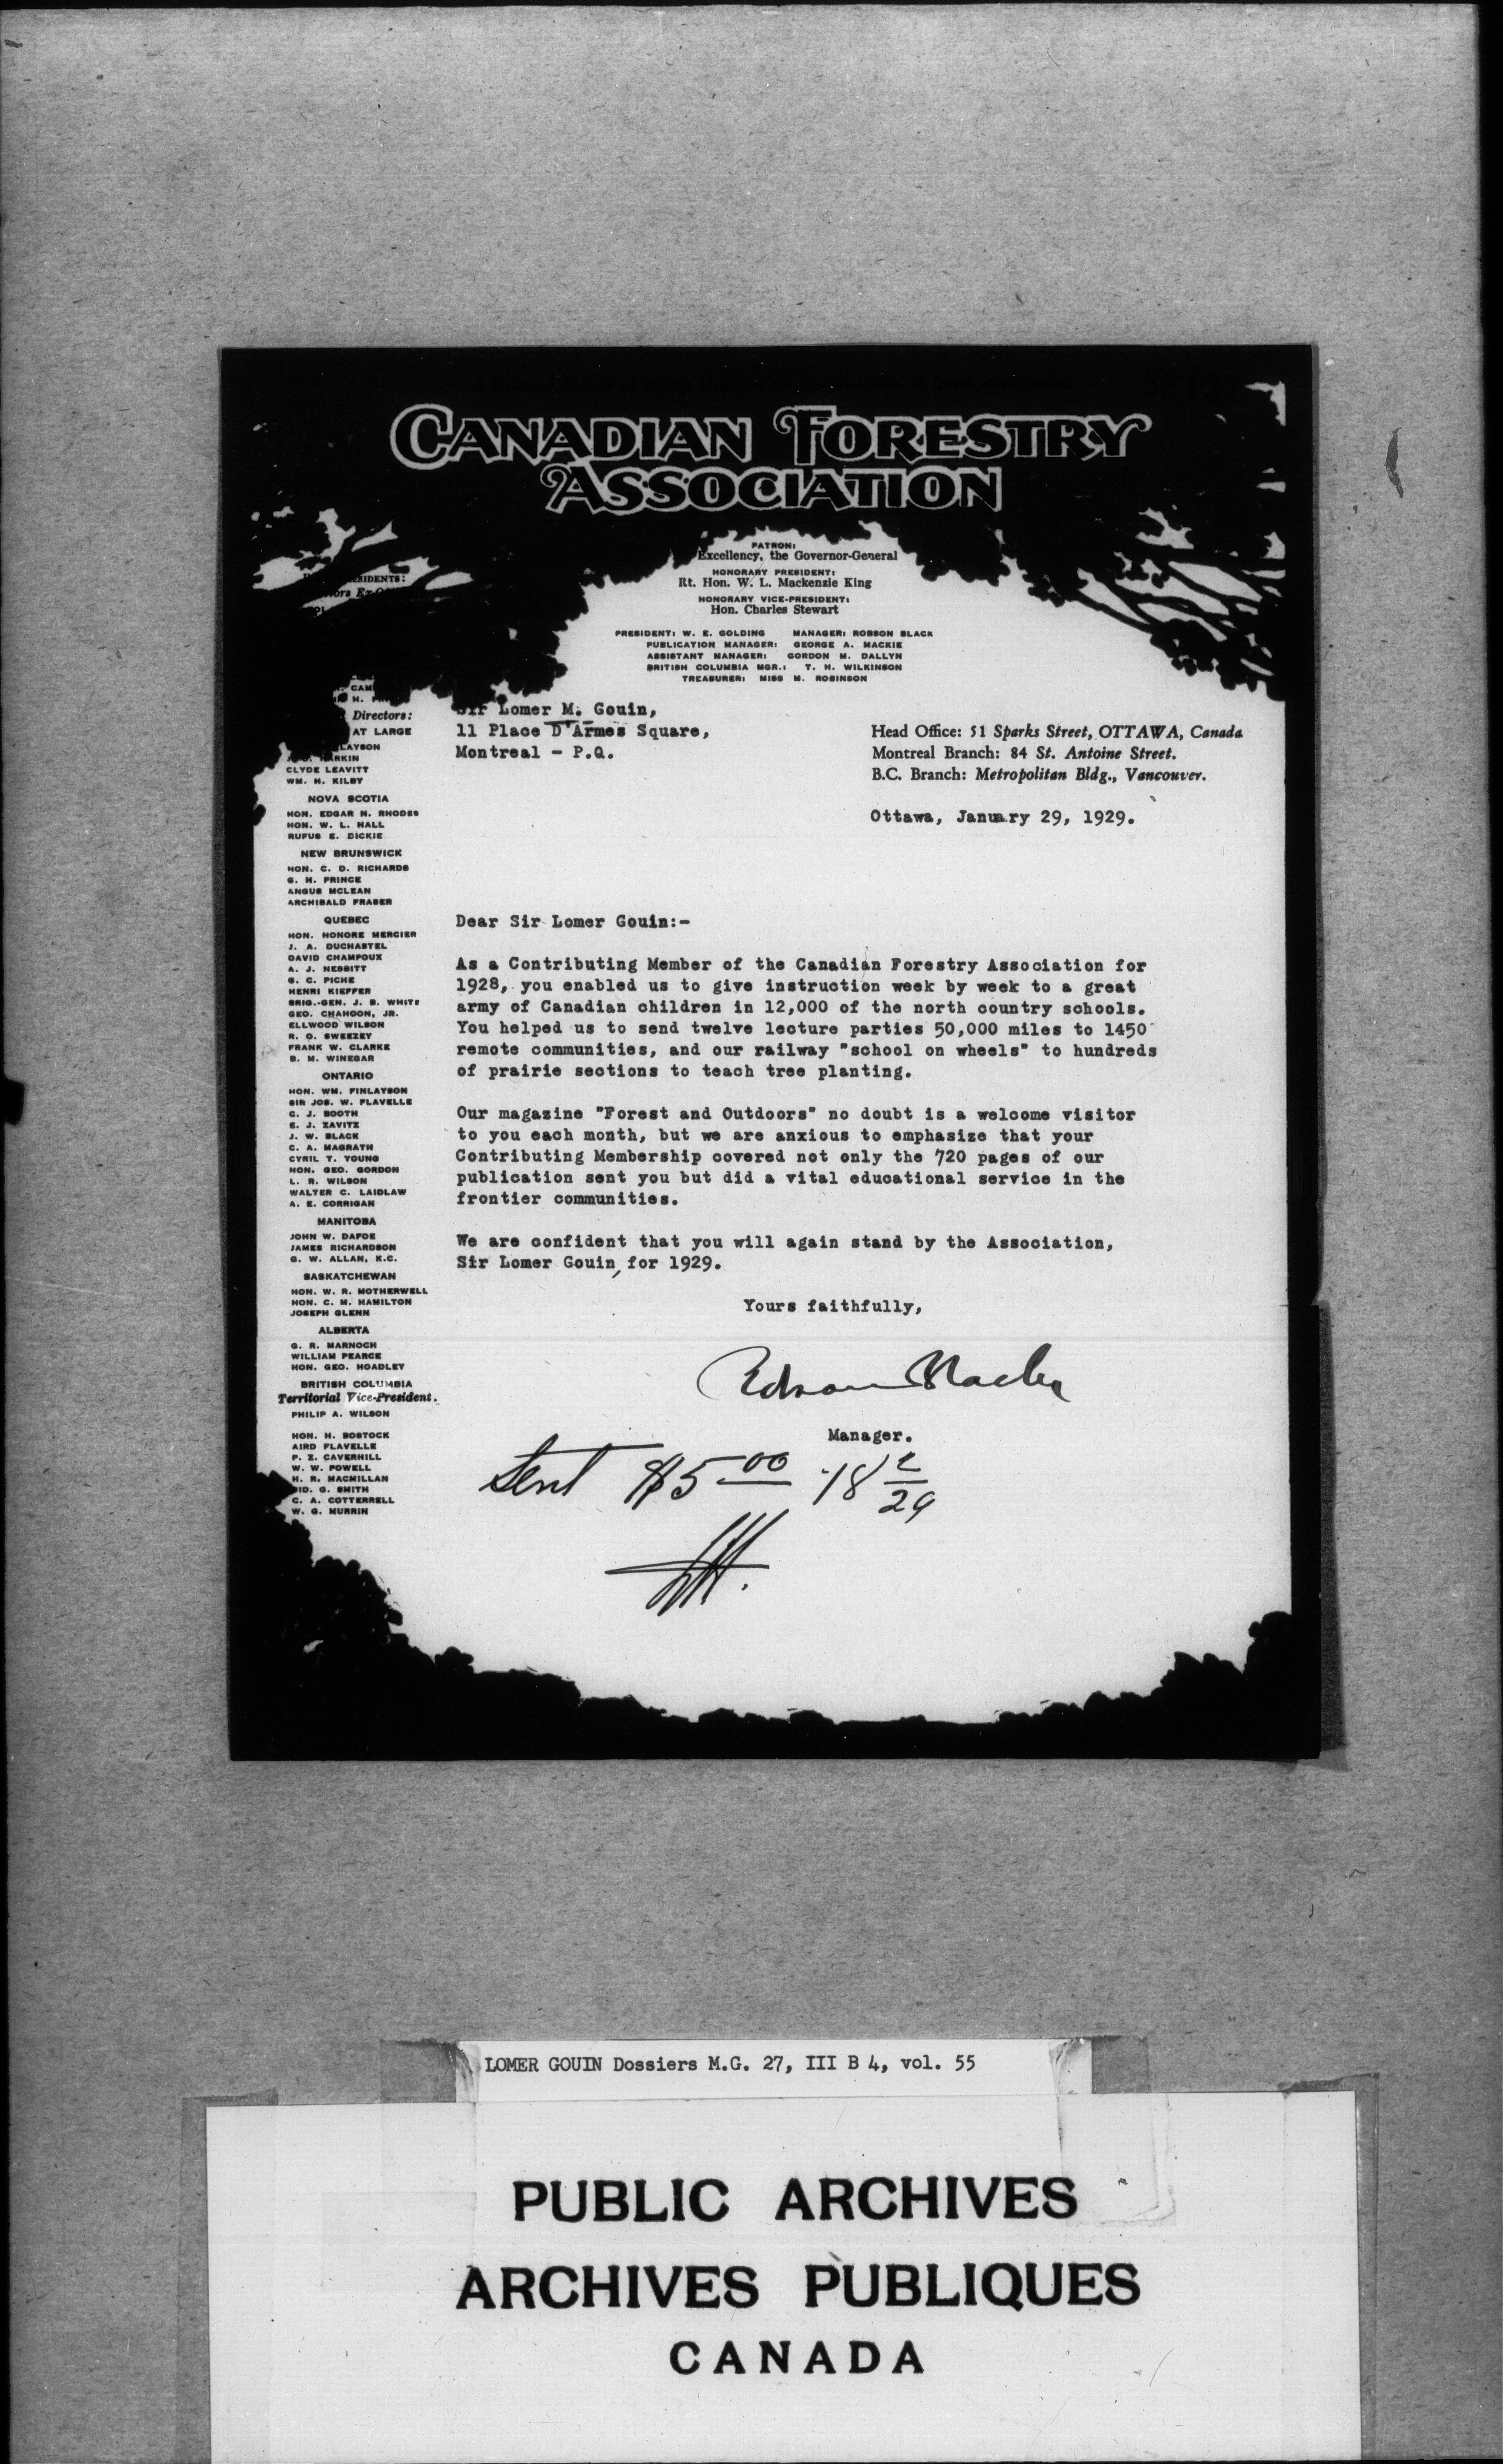 CANADIAN FORESTRY
ASSOCIATION
PATRON:
Excellency, the Governor-General
HONORARY PRESIDENT:
Rt. Hon. W. L. Mackenzie King
HONORARY VICE-PRESIDENT:
Hon. Charles Stewart
PRESIDENT: W. E. GOLDING MANAGER: ROBSON BLACK
PUBLICATION MANAGER: GEORGE A. MACKIE
ASSISTANT MANAGER: GORDON M. DALLYN
BRITISH COLUMBIA MGR.: T. H. WILKINSON
TREASURER: MISS M. ROBINSON
Directors:
AT LARGE
CLYDE LEAVITT
WM. H. KILBY
NOVA SCOTIA
HON. EDGAR N. RHODES
HON. W. L. HALL
RUFUS E. DICKIE
NEW BRUNSWICK
HON. C. D. RICHARDS
G. H. PRINCE
ANGUS MCLEAN
ARCHIBALD FRASER
QUEBEC
HON. HONORE MERCIER
J. A. DUCHASTEL
DAVID CHAMPOUX
A. J. NESBITT
G. C. PICHE
HENRI KIEFFER
BRIG.-GEN. J. B. WHITE
GEO. CHAHOON, JR.
ELLWOOD WILSON
R. O. SWEEZEY
FRANK W. CLARKE
B. M. WINEGAR
ONTARIO
HON. WM. FINLAYSON
SIR JOS. W. FLAVELLE
C. J. BOOTH
E. J. ZAVITZ
J. W. BLACK
C. A. MAGRATH
CYRIL T. YOUNG
HON. GEO. GORDON
L. R. WILSON
WALTER C. LAIDLAW
A. E. CORRIGAN
MANITOBA
JOHN W. DAFOE
JAMES RICHARDSON
G. W. ALLAN, K.C.
SASKATCHEWAN
HON. W. R. MOTHERWELL
HON. C. M. HAMILTON
JOSEPH GLENN
ALBERTA
G. R. MARNOCH
WILLIAM PEARCE
HON. GEO. HOADLEY
BRITISH COLUMBIA
Territorial Vice-President.
PHILIP A. WILSON
HON. H. BOSTOCK
AIRD FLAVELLE
P. Z. CAVERHILL
W. W. POWELL
H. R. MACMILLAN
SID. G. SMITH
C. A. COTTERRELL
W. G. MURRIN
Sir Lomer M. Gouin,
11 Place D'Armes Square,
Montreal - P.Q.
Head Office: 51 Sparks Street, OTTAWA, Canada
Montreal Branch: 84 St. Antoine Street.
B.C. Branch: Metropolitan Bldg., Vancouver.
Ottawa, January 29, 1929.
Dear Sir Lomer Gouin:-
As a Contributing Member of the Canadian Forestry Association for
1928, you enabled us to give instruction week by week to a great
army of Canadian children in 12,000 of the north country schools.
You helped us to send twelve lecture parties 50,000 miles to 1450
remote communities, and our railway "school on wheels" to hundreds
of prairie sections to teach tree planting.
Our magazine "Forest and Outdoors" no doubt is a welcome visitor
to you each month, but we are anxious to emphasize that your
Contributing Membership covered not only the 720 pages of our
publication sent you but did a vital educational service in the
frontier communities.
We are confident that you will again stand by the Association,
Sir Lomer Gouin, for 1929.
Yours faithfully,
Robson Black
Manager.
Sent $5 00 18 2/29
LOMER GOUIN Dossiers M.G. 27, III B 4, vol. 55
PUBLIC ARCHIVES
ARCHIVES PUBLIQUES
CANADA